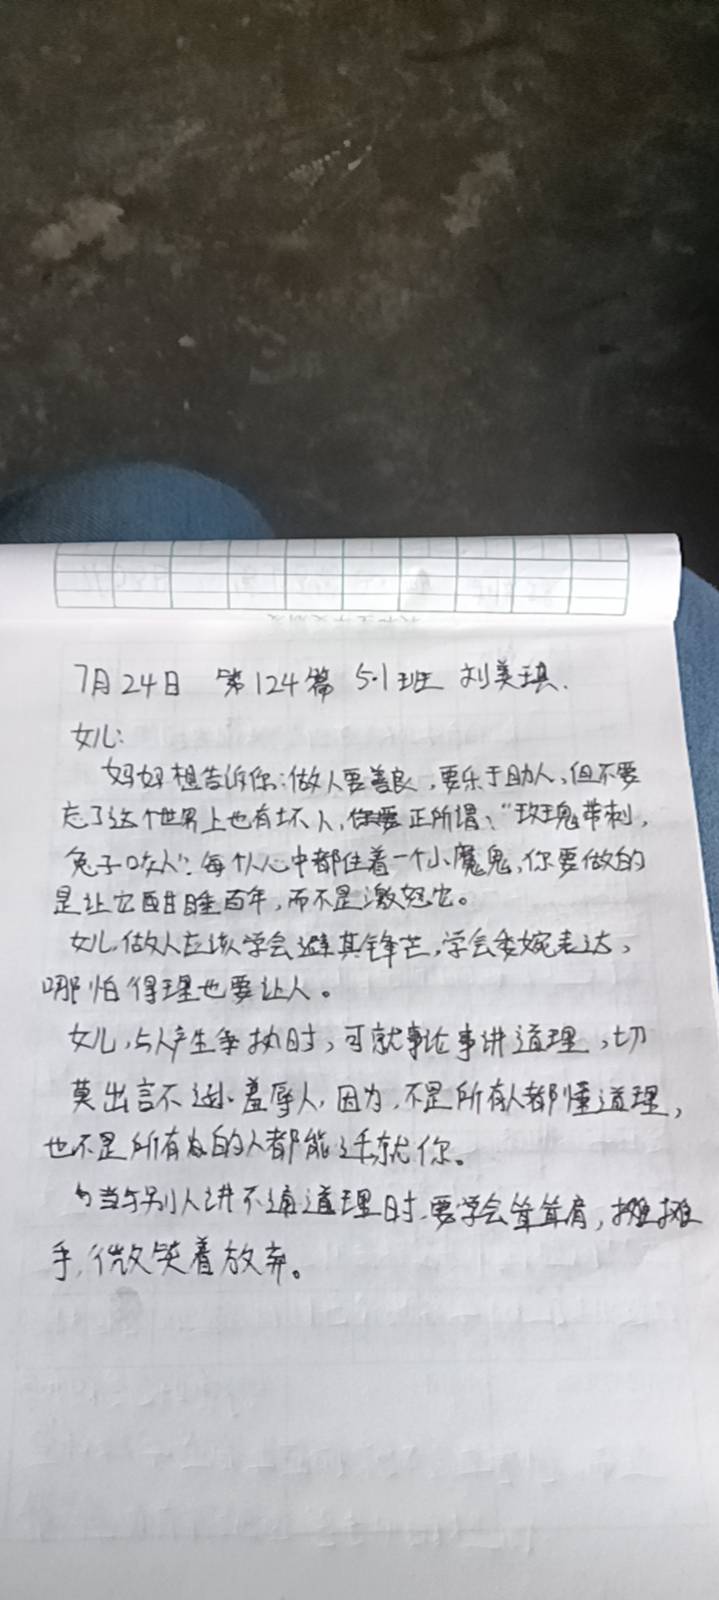 7月24日 第124篇 5.1班 刘美琪.
女儿:
妈妈想告诉你:做人要善良,要乐于助人,但不要
忘了这个世界上也有坏人,正所谓:“玫瑰带刺,
兔子咬人”.每个人心中都住着一个小魔鬼,你要做的
是让它酣睡百年,而不是激怒它。
女儿,做人应该学会避其锋芒,学会委婉表达,
哪怕得理也要让人。
女儿,与人产生争执时,可就事论事讲道理,切
莫出言不逊羞辱人,因为,不是所有人都懂道理,
也不是所有的人都能迁就你。
当与别人讲不通道理时,要学会耸耸肩,摊摊
手,微笑着放弃。